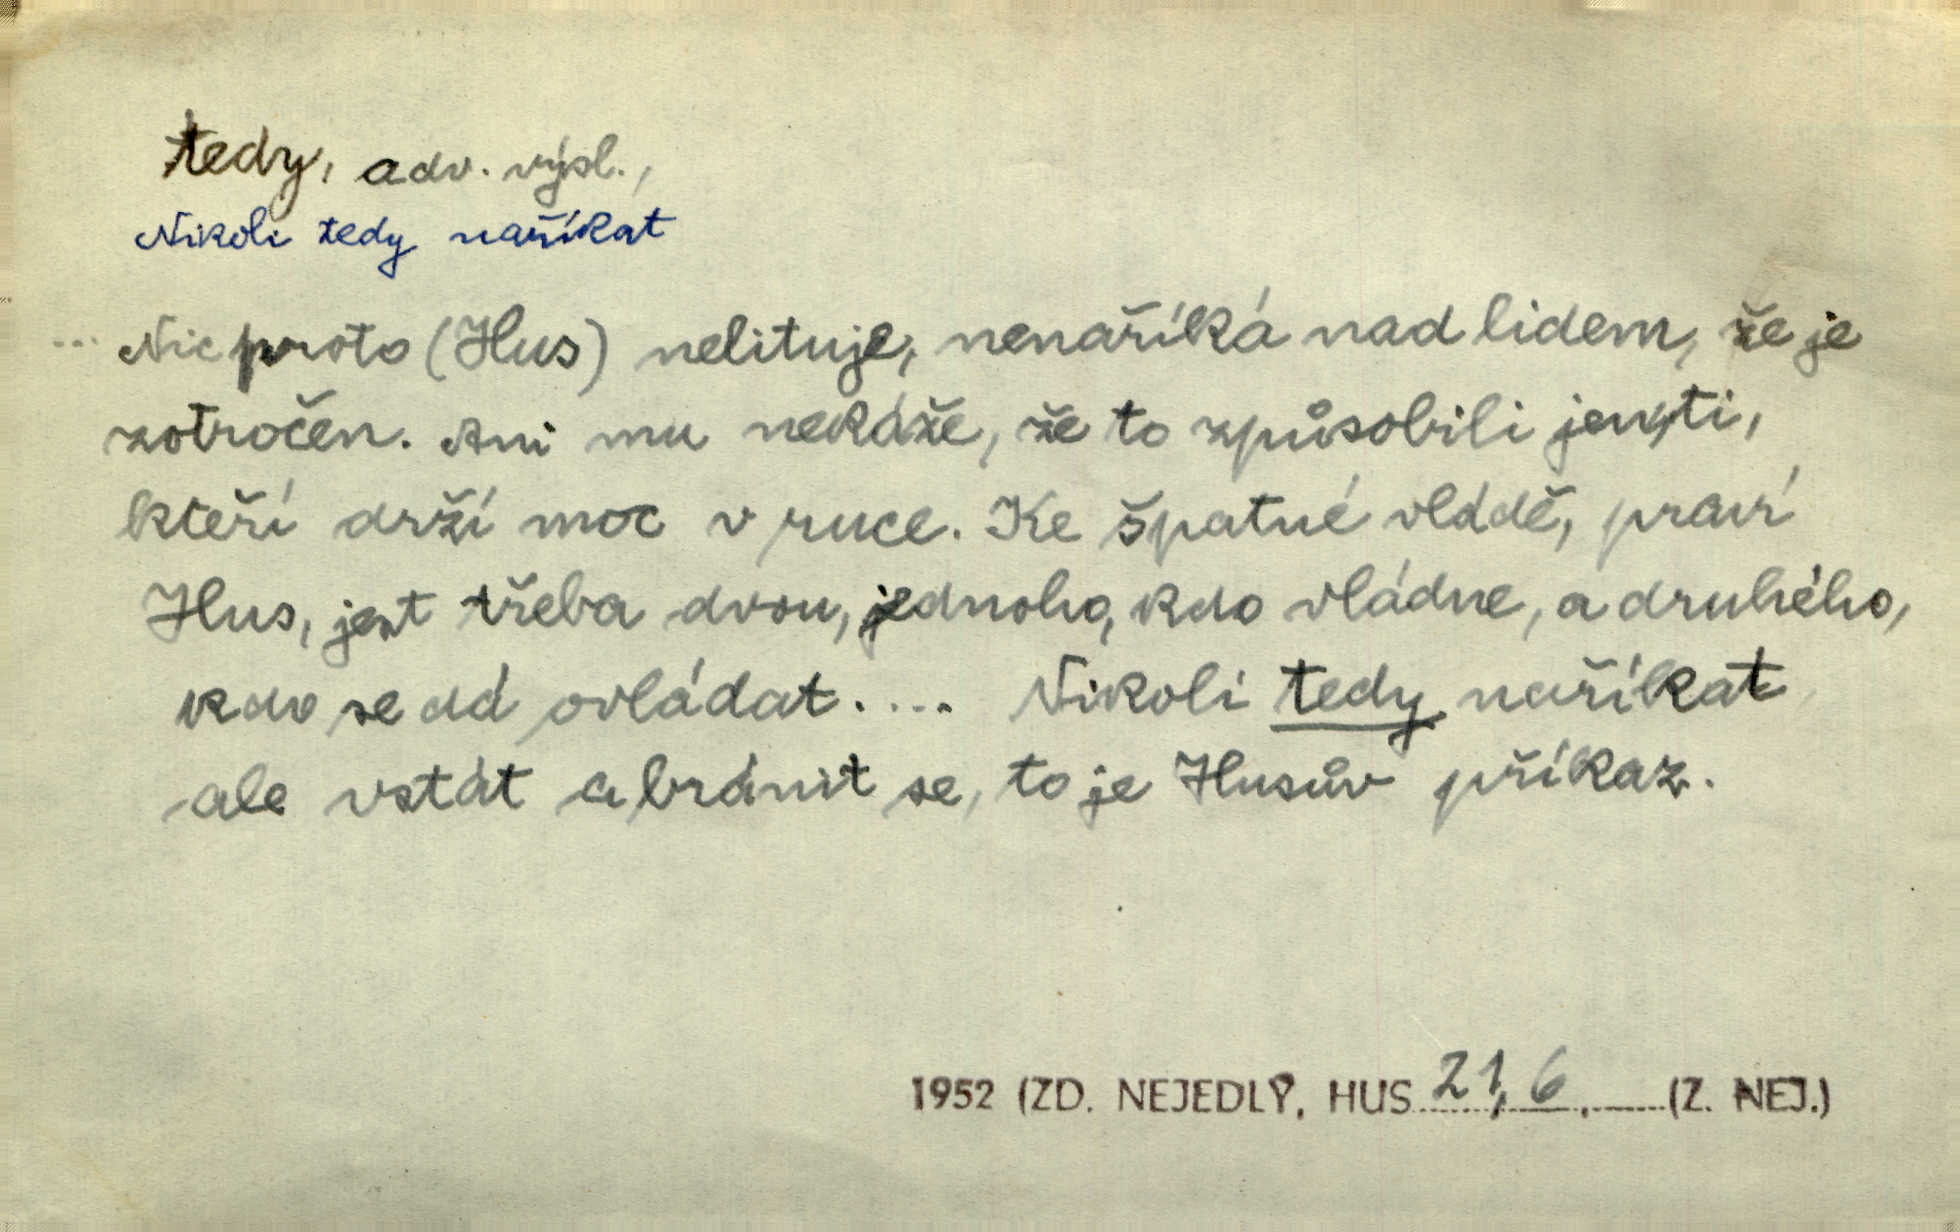 tedy, adv. výsl.,
Nikoli tedy naříkat
... Nic proto (Hus) nelituje, nenaříká nad lidem, že je
zotročen. Ani mu nekáže, že to způsobili jen ti,
kteří drží moc v ruce. Ke špatné vládě, praví
Hus, jest třeba dvou, jednoho, kdo vládne, a druhého,
kdo se dá ovládat. ... Nikoli tedy naříkat
ale vstát a bránit se, to je Husův příkaz.
1952 (ZD. NEJEDLÝ, HUS 21, 6, (Z. NEJ.)